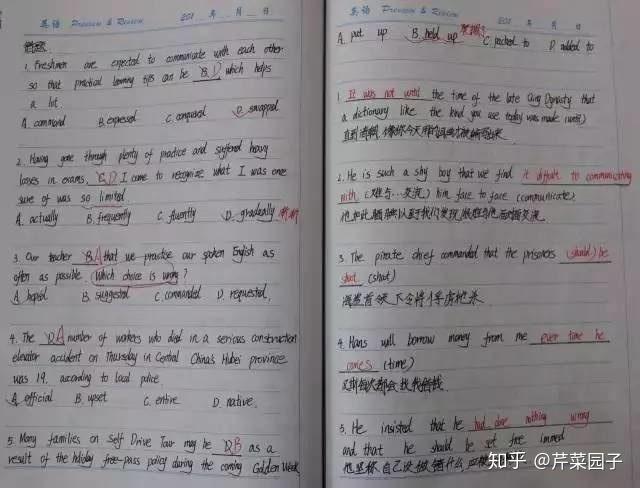 英语 PREVIEW & REVIEW 201 年 月 日
错题
1. Freshmen are expected to communicate with each other
so that practical learning tips can be B D which helps
a lot.
A. command B. expressed C. compared D. swapped
2. Having gone through plenty of practice and suffered heavy
losses in exams, B D I come to recognize what I was once
sure of was so limited.
A. actually B. frequently C. fluently D. gradually 渐渐
3. Our teacher B A that we practise our spoken English as
often as possible. Which choice is wrong?
A. hoped B. suggested C. commanded D. requested.
4. The D A number of workers who died in a serious construction
elevator accident on Thursday in Central China's Hubei province
was 19. according to local police.
A. official B. upset C. entire D. native.
5. Many families on Self Drive Tour may be D B as a
result of the holiday free-pass policy during the coming Golden Week
英语 PREVIEW & REVIEW 201 年 月 日
A. put up B. held up C. packed to D. added to
1. It was not until the time of the late Qing Dynasty that
a dictionary like the kind you use today was made (until)
直到清朝, 像你今天用的词典才被编写出来.
2. He is such a shy boy that we find it difficult to communicating
with (难与…交流) him face to face (communicate).
他如此腼腆以至于我们发现很难与他面对面交流.
3. The pirate chief commanded that the prisoners (should) be
shot (shoot)
海盗首领下令将俘虏枪杀.
4. Hans will borrow money from me every time he
comes (time)
汉斯每次都会找我借钱.
5. He insisted that he had done nothing wrong
and that he should be set free immed
他坚称自己没做错什么, 应被
知乎 @芹菜园子